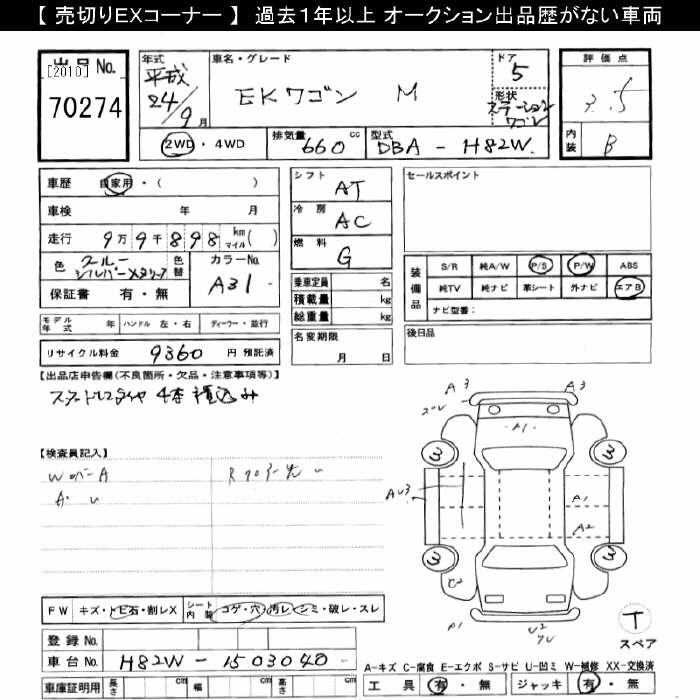 【 売切りEXコーナー 】 過去1年以上 オークション出品歴がない車両
出品 No.
[2010]
70274
年式
平成
24/9月
車名・グレード
EKワゴン M
ドア
5
形状
ステーション
ワゴン
評価点
3.5
内装
B
2WD ・ 4WD
排気量
660 cc
型式
DBA - H82W
車歴 自家用・( )
車検 年 月
走行 9万9千898 km マイル( )
色 クールシルバーメタリック
色替
カラーNo.
A31
保証書 有・無
シフト
AT
冷房
AC
燃料
G
乗車定員 名
積載量 kg
総重量 kg
名変期限
月 日
セールスポイント
装備品
S/R 純A/W P/S P/W ABS
純TV 純ナビ 革シート 外ナビ エアB
ナビ型番:
後日品
モデル年式 年 ハンドル 左・右 ディーラー・並行
リサイクル料金 9360 円 預託済
【出品店申告欄(不良箇所・欠品・注意事項等)】
スタットレスタイヤ 4本 積込み
【検査員記入】
A3
A3
A1
3
3
AU3
A1
A2
3
3
A1
U2
FW キズ・トビ石・割レX シート内装 コゲ・穴 汚レ・シミ・破レ・スレ
登録 No.
車台 No. H82W - 1503040
車庫証明用 長さ cm 幅 cm 高さ cm
T
スペア
A-キズ C-腐食 E-エクボ S-サビ U-凹ミ W-補修 XX-交換済
工具 有・無 ジャッキ 有・無